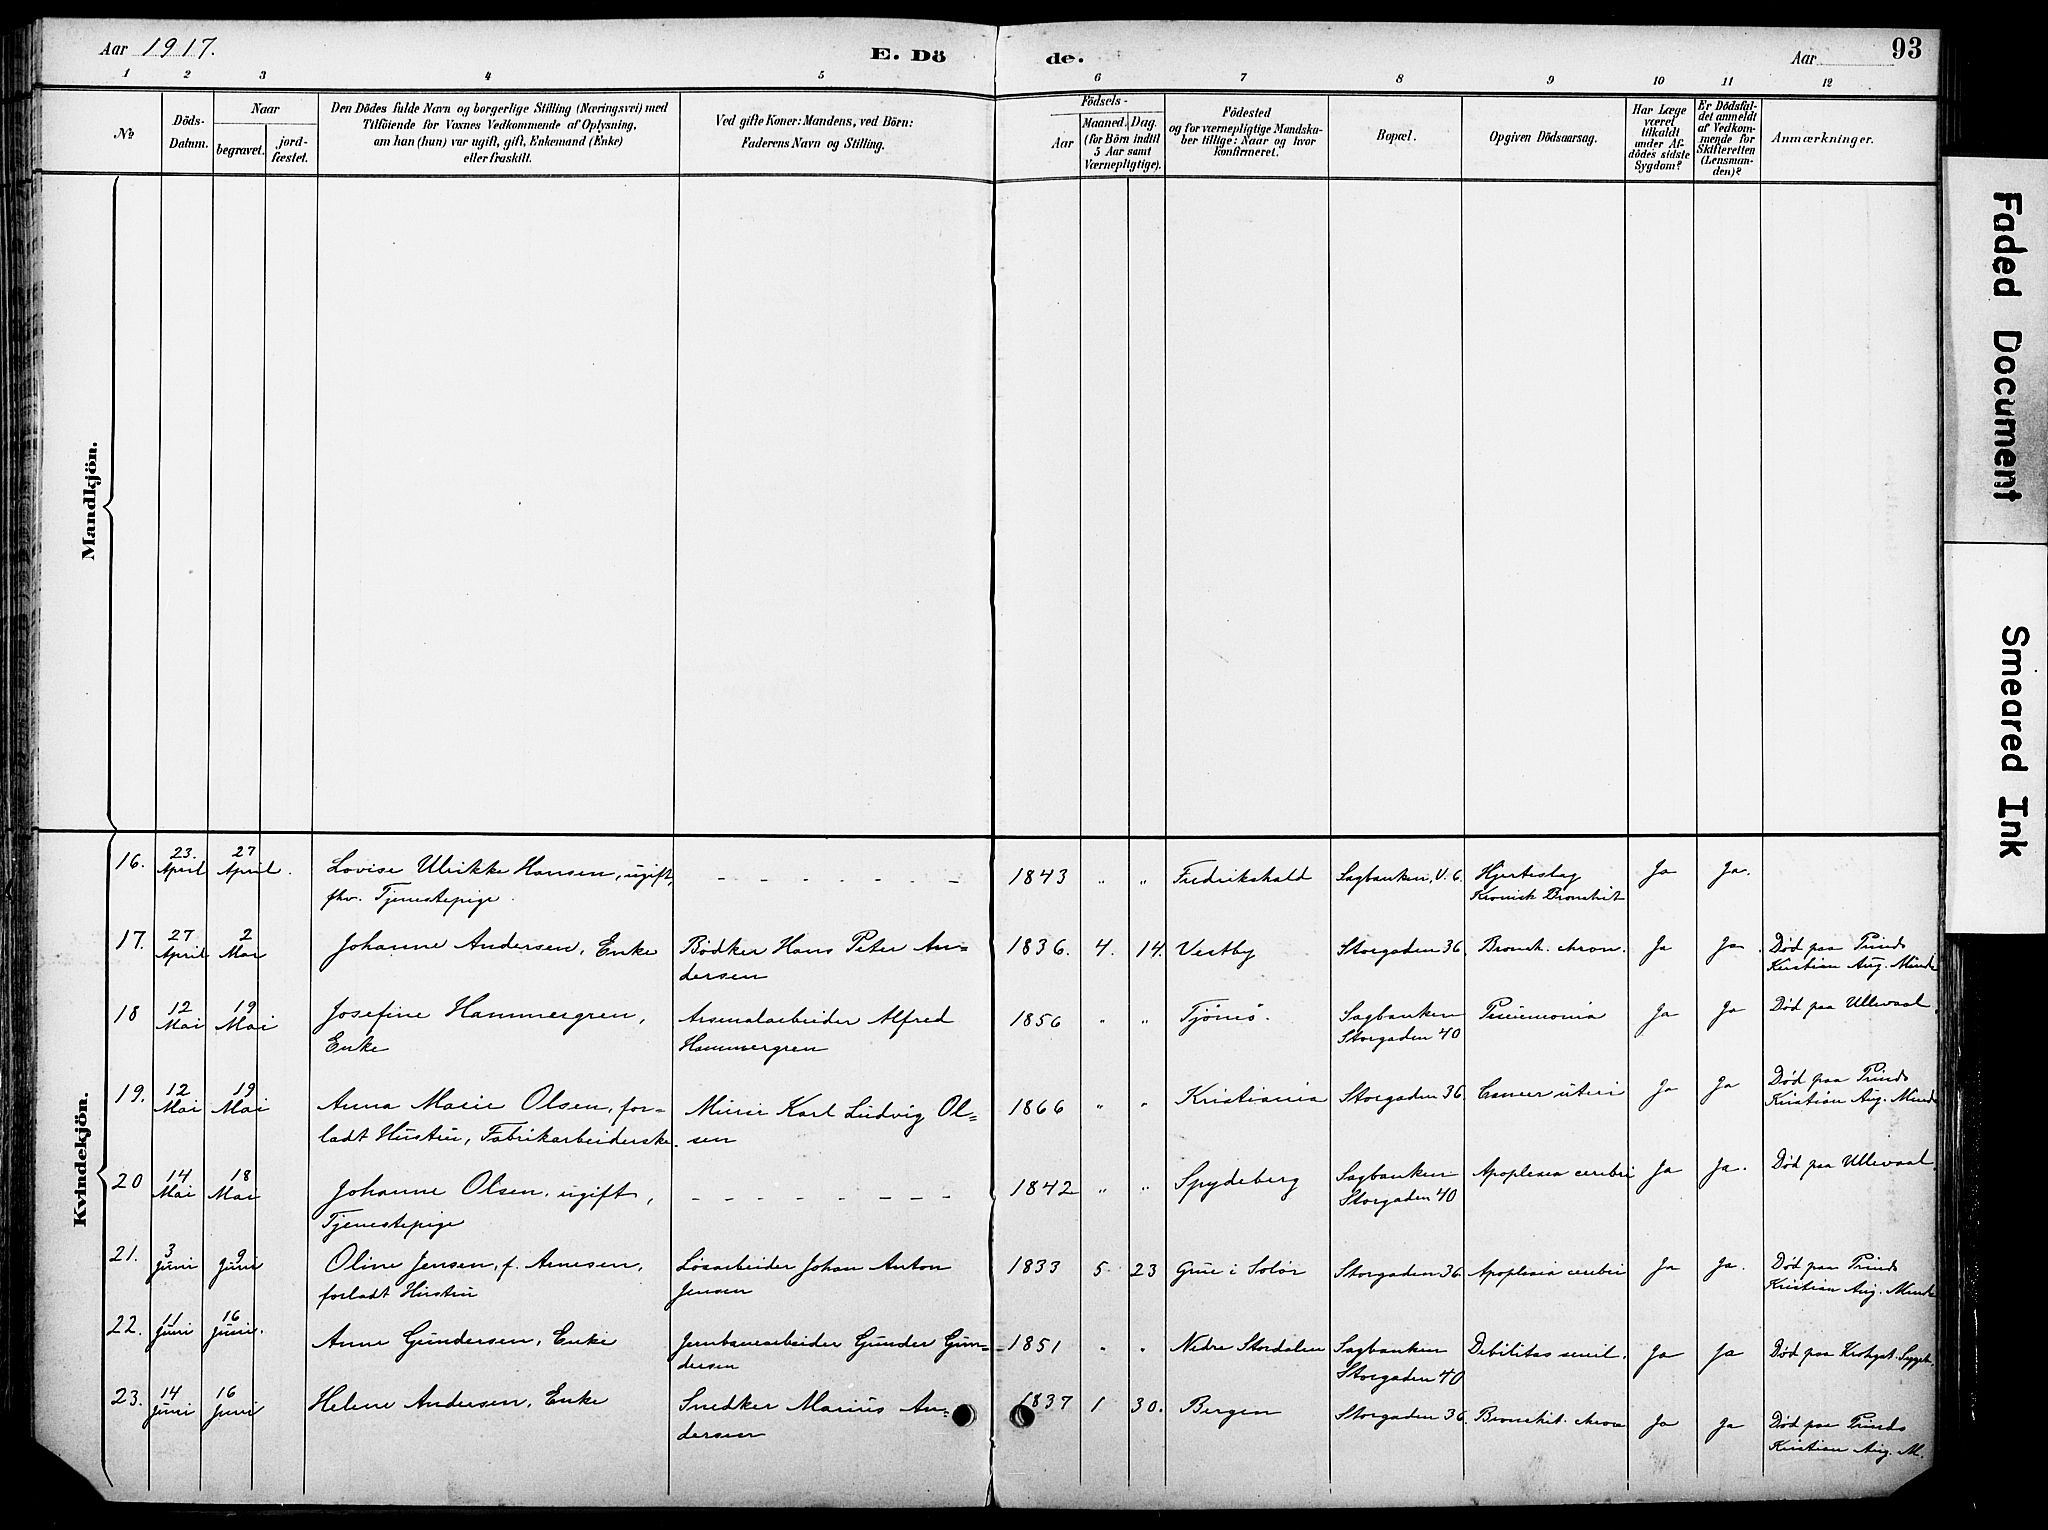 Aar 1917.
E. Dö de.
Aar
93
1 2 3 4 5 6 7 8 9 10 11 12
№
Döds-
Datum.
Naar
begravet.
jord-
fæstet.
Den Dödes fulde Navn og borgerlige Stilling (Næringsvei) med
Tilföiende for Voxnes Vedkommende af Oplysning,
om han (hun) var ugift, gift, Enkemand (Enke)
eller fraskilt.
Ved gifte Koner: Mandens, ved Börn:
Faderens Navn og Stilling.
Födsels-
Aar
Maaned. Dag.
(for Börn indtil
5 Aar samt
Værnepligtige).
Födested
og for værnepligtige Mandska-
ber tillige: Naar og hvor
konfirmeret.
Bopæl.
Opgiven Dödsaarsag.
Har Læge
været
tilkaldt
under Af-
dödes sidste
Sygdom?
Er Dödsfal-
det anmeldt
af Vedkom-
mende for
Skifteretten
(Lensman-
den)?
Anmærkninger.
Mandkjön.
Kvindekjön.
16. 23. April 27 April. Lovise Ulrikke Hansen, ugift, – – – – – – – 1843 „ „ Fredrikshald Sagbanken, V. 6. Hjerteslag Ja Ja.
fhv. Tjenestepige. Kronisk Bronchit
17. 27 April 2 Mai Johanne Andersen, Enke Bødker Hans Peter An- 1836. 4. 14. Vestby Storgaden 36. Bronch. chron. Ja Ja. Død paa Prinds
dersen Kristian Aug. Minde
18 12 Mai 19 Mai Josefine Hammergren, Arsenalarbeider Alfred 1856 „ „ Tjømø. Sagbanken Pneumonia Ja Ja Død paa Ullevaal.
Enke Hammergren Storgaden 40
19. 12 Mai 19 Mai Anna Marie Olsen, for- Murer Karl Ludvig Ol- 1866 „ „ Kristiania Storgaden 36 Cancer uteri Ja Ja Død paa Prinds
ladt Hustru, Fabrikarbeiderske. sen Kristian Aug. Minde
20 14 Mai 18 Mai Johanne Olsen, ugift, – – – – – – – – 1842 „ „ Spydeberg Sagbanken Apoplexia cerebri Ja Ja. Død paa Ullevaal.
Tjenestepige Storgaden 40
21. 3 Juni 9 Juni Oline Jensen, f. Arnesen, Løsarbeider Johan Anton 1833 5 23 Grue i Solør Storgaden 36. Apoplexia cerebri Ja Ja. Død paa Prinds
forladt Hustru Jensen Kristian Aug. Minde
22. 11 Juni 16 Juni. Anne Gundersen, Enke Jernbanearbeider Gunder Gun- 1851 „ „ Nedre Stordalen Sagbanken Debilitas senil. Ja Ja Død paa
dersen Storgaden 40
23. 14 Juni 16 Juni Helene Andersen, Enke Snedker Marius An- 1837 1 30. Bergen Storgaden 36. Bronchit. chron Ja Ja Død paa Prinds
dersen Kristian Aug. M.
Faded Document
Smeared Ink